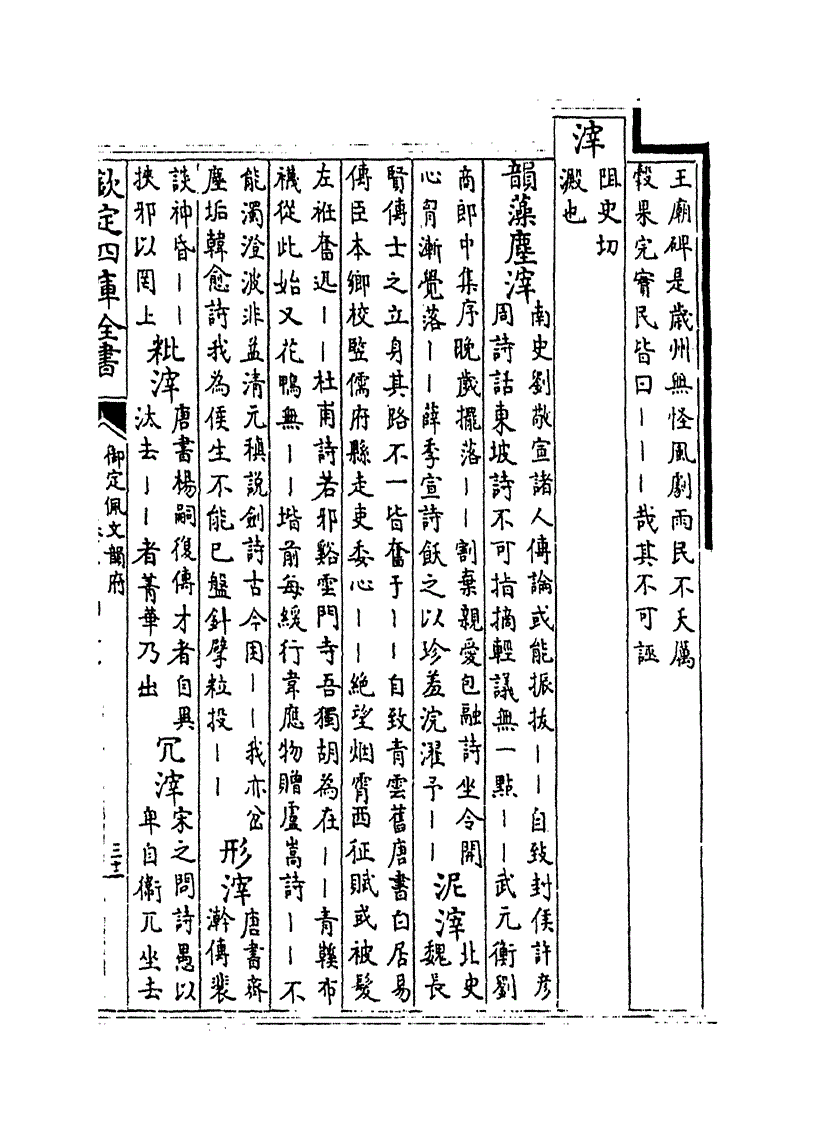 王廟碑是歲州無怪風劇雨民不夭厲
穀果完實民皆曰丨丨丨哉其不可誣
滓
阻史切
澱也
韻藻塵滓
南史劉敬宣諸人傳論或能振拔丨丨自致封侯許彦
周詩話東坡詩不可指摘輕議無一點丨丨武元衡劉
商郎中集序晚歲擺落丨丨割棄親愛包融詩坐令開
心胷漸覺落丨丨薛季宣詩飫之以珍羞浣濯予丨丨
泥滓
北史
魏長
賢傳士之立身其路不一皆奮于丨丨自致青雲舊唐書白居易
傳臣本鄉校豎儒府縣走吏委心丨丨絶望烟霄西征賦或被髮
左袵奮迅丨丨杜甫詩若邪谿雲門寺吾獨胡為在丨丨青鞵布
襪從此始又花鴨無丨丨堦前每緩行韋應物贈盧嵩詩丨丨不
能濁澄波非益清元稹說劍詩古今困丨丨我亦岔
塵垢韓愈詩我為侯生不能已盤針擘粒投丨丨
形滓
唐書齊
澣傳裴
談神昏丨丨
挾邪以罔上
粃滓
唐書楊嗣復傳才者自異
汰去丨丨者菁華乃出
冗滓
宋之問詩愚以
卑自衛兀坐去
欽定四庫全書
御定佩文韻府
三十二